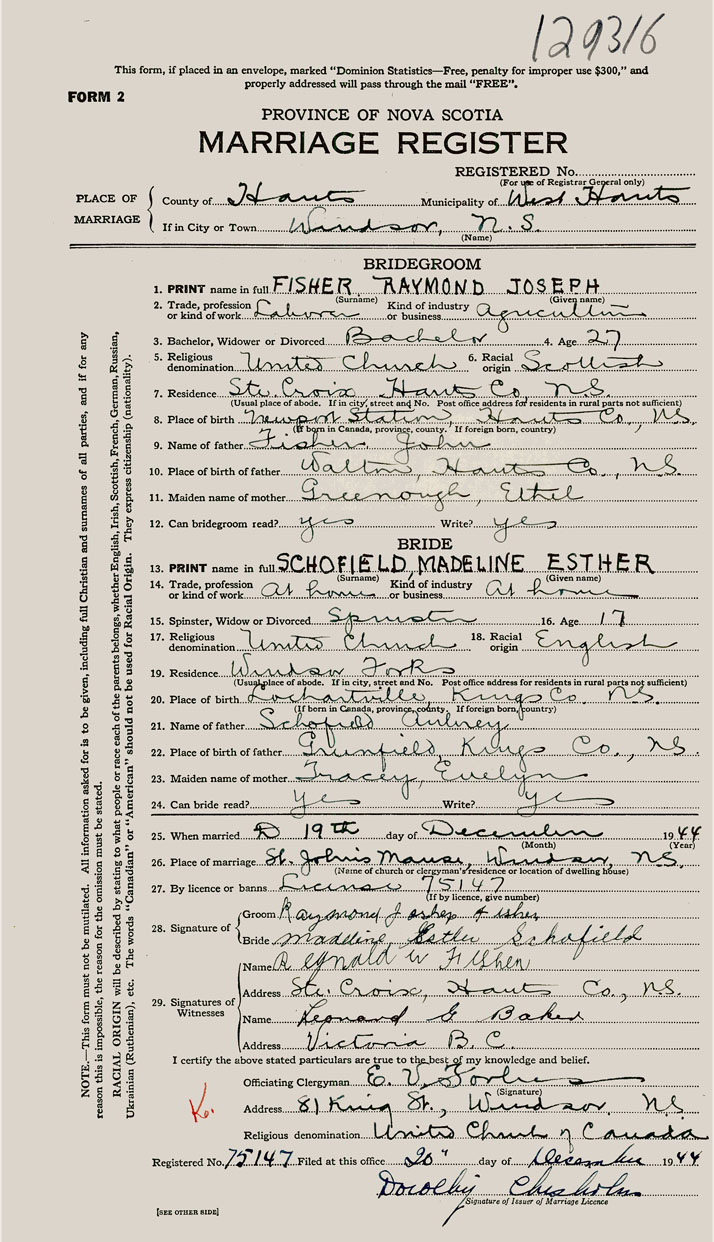 129316
This form, if placed in an envelope, marked "Dominion Statistics—Free, penalty for improper use $300," and
properly addressed will pass through the mail "FREE".
FORM 2
PROVINCE OF NOVA SCOTIA
MARRIAGE REGISTER
REGISTERED No.
(For use of Registrar General only)
PLACE OF MARRIAGE
County of Hants Municipality of West Hants
If in City or Town Windsor, N.S.
(Name)
BRIDEGROOM
1. PRINT name in full FISHER RAYMOND JOSEPH
(Surname) (Given name)
2. Trade, profession or kind of work Laborer Kind of industry or business Agriculture
3. Bachelor, Widower or Divorced Bachelor 4. Age 27
5. Religious denomination United Church 6. Racial origin Scottish
7. Residence Ste. Croix Hants Co, N.S.
(Usual place of abode. If in city, street and No. Post office address for residents in rural parts not sufficient)
8. Place of birth Newport Station, Hants Co., N.S.
(If born in Canada, province, county. If foreign born, country)
9. Name of father Fisher John
10. Place of birth of father Walton, Hants Co., N.S.
11. Maiden name of mother Greenough, Ethel
12. Can bridegroom read? yes Write? yes
BRIDE
13. PRINT name in full SCHOFIELD, MADELINE ESTHER
(Surname) (Given name)
14. Trade, profession or kind of work At home Kind of industry or business At home
15. Spinster, Widow or Divorced Spinster 16. Age 17
17. Religious denomination United Church 18. Racial origin English
19. Residence Windsor Forks
(Usual place of abode. If in city, street and No. Post office address for residents in rural parts not sufficient)
20. Place of birth Lochartville, Kings Co. N.S.
(If born in Canada, province, county. If foreign born, country)
21. Name of father Schofield Aubrey
22. Place of birth of father Greenfield, Kings Co., N.S.
23. Maiden name of mother Tracey, Evelyn
24. Can bride read? Yes Write? Yes
25. When married 19th day of December 1944
(Month) (Year)
26. Place of marriage St. John's Manse, Windsor, N.S.
(Name of church or clergyman's residence or location of dwelling house)
27. By licence or banns License 75147
(If by licence, give number)
28. Signature of
Groom Raymond Joshep Fisher
Bride Madeline Esther Schofield
29. Signatures of Witnesses
Name Regnald W Fisher
Address Ste. Croix, Hants Co., N.S.
Name Leonard G Baker
Address Victoria B.C.
I certify the above stated particulars are true to the best of my knowledge and belief.
Officiating Clergyman E. V. Forbes
(Signature)
Address 81 King St., Windsor, N.S.
Religious denomination United Church of Canada
Registered No. 75147 Filed at this office 20" day of December 1944
Dorothy Chisholm
Signature of Issuer of Marriage Licence
[SEE OTHER SIDE]
NOTE.—This form must not be mutilated. All information asked for is to be given, including full Christian and surnames of all parties, and if for any
reason this is impossible, the reason for the omission must be stated.
RACIAL ORIGIN will be described by stating to what people or race each of the parents belongs, whether English, Irish, Scottish, French, German, Russian,
Ukrainian (Ruthenian), etc. The words "Canadian" or "American" should not be used for Racial Origin. They express citizenship (nationality).